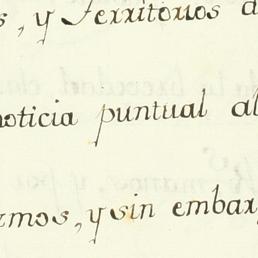 s, y Territorios d
noticia puntual al
smos, y sin embar